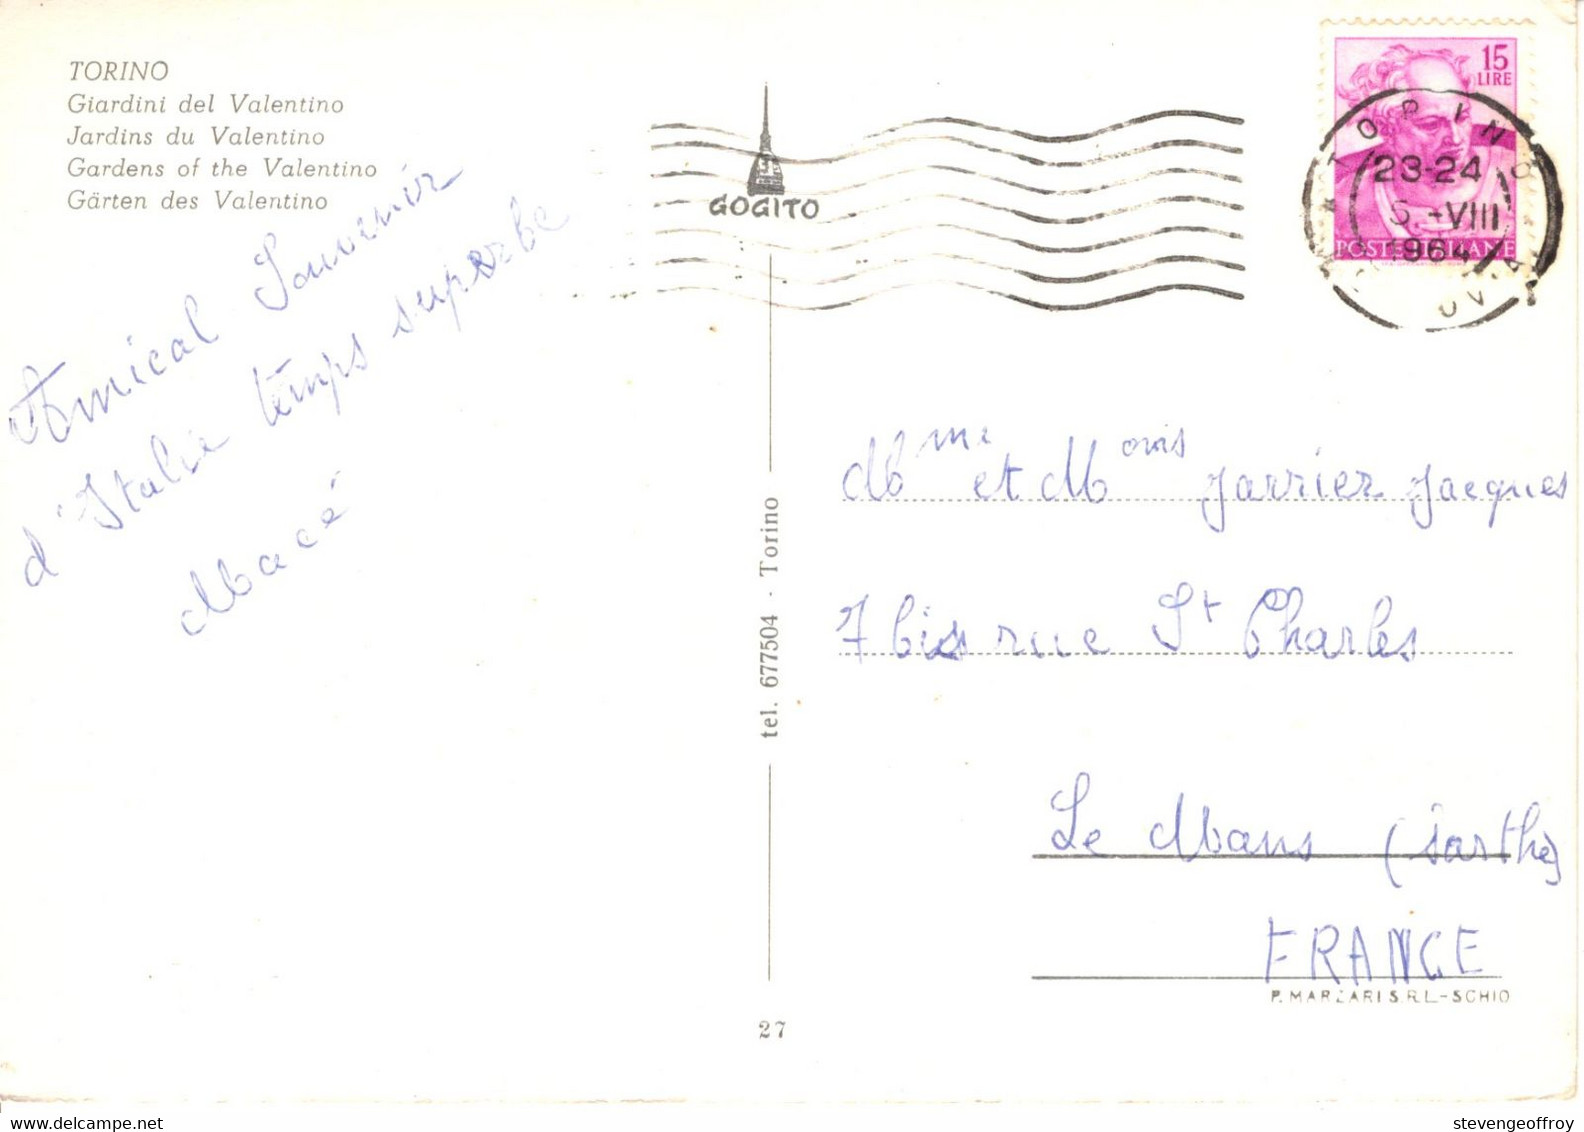 TORINO
Giardini del Valentino
Jardins du Valentino
Gardens of the Valentino
Gärten des Valentino
Amical Souvenir
d'Italie temps superbe
Macé
GOGITO
15
LIRE
POSTE ITALIANE
TORINO
23-24
5.-VIII
1964
tel. 677504 - Torino
27
Mme et Mons Jarrier Jacques
7 bis rue St Charles
Le Mans (Sarthe)
FRANCE
P. MARZARI S.R.L.-SCHIO
stevengeoffroy
delcampe.net